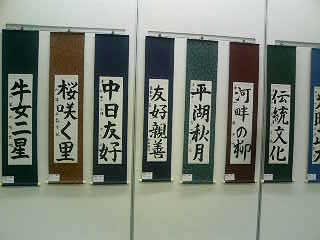 牛女二星
桜咲く里
中日友好
友好親善
平湖秋月
河畔の柳
伝統文化